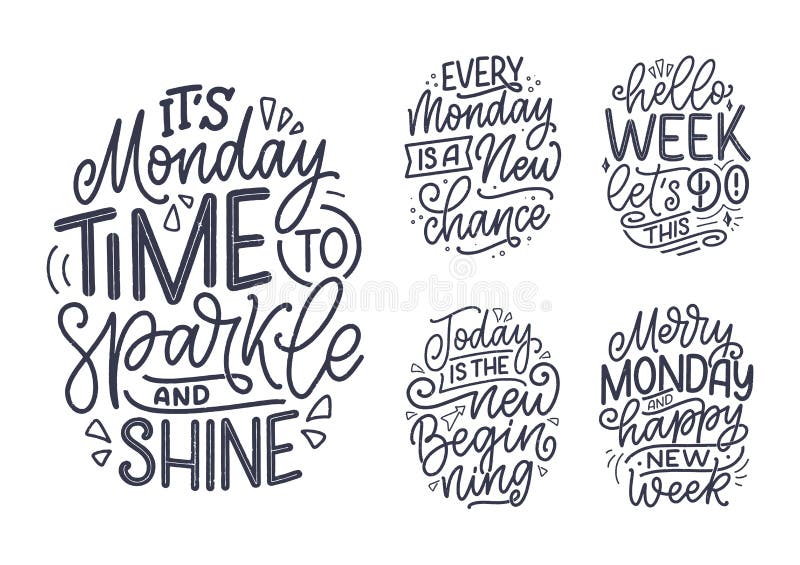 IT'S
Monday
TIME TO
Sparkle
AND
SHINE
EVERY
Monday
IS A New
Chance
hello
WEEK
let's DO!
THIS
Today
IS THE
new
Begin
ning
Merry
MONDAY
AND
happy
NEW
Week
dreamstime